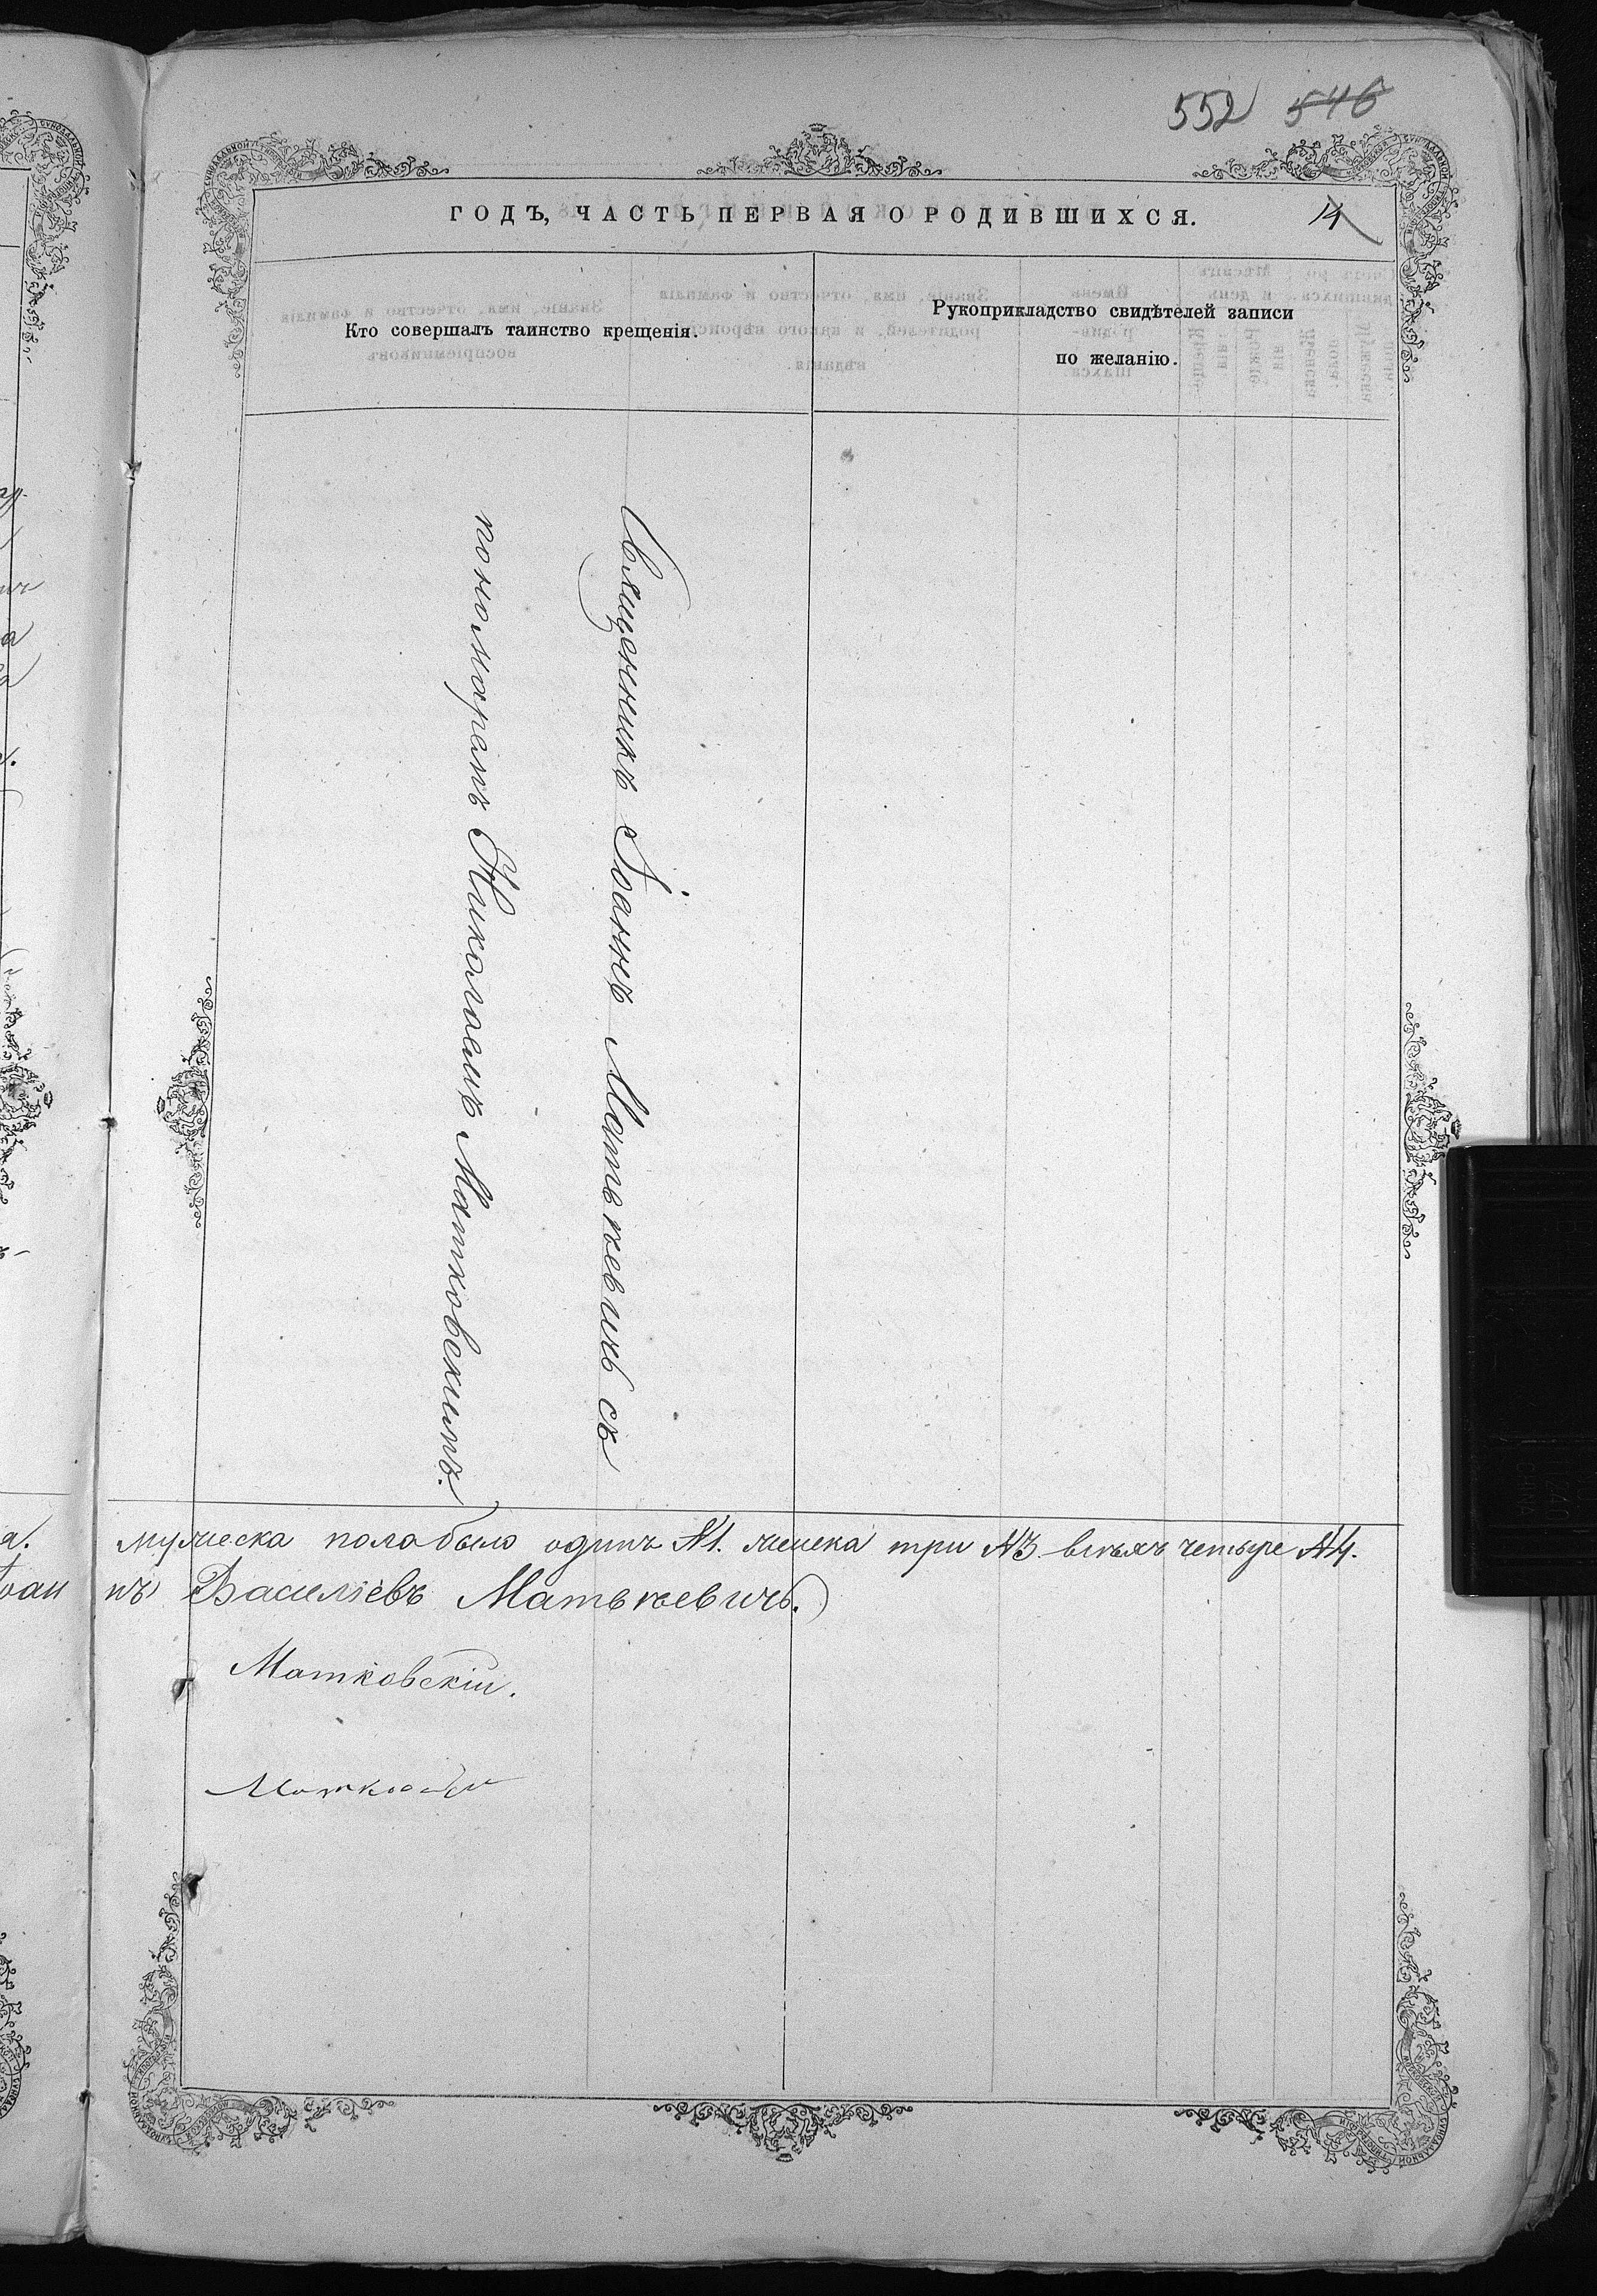 552 546
ГОДЪ, ЧАСТЬ ПЕРВАЯ О РОДИВШИХСЯ.
14
Кто совершалъ таинство крещенія.
Рукоприкладство свидѣтелей записи
по желанію.
Священникъ Іоаннъ Матькевичъ съ
пономаремъ Николаемъ Матковскимъ.
мужеска пола было одинъ №1. женска три №3 всѣхъ четыре №4.
нъ Василіевъ Матькевичъ.
Матковскій.